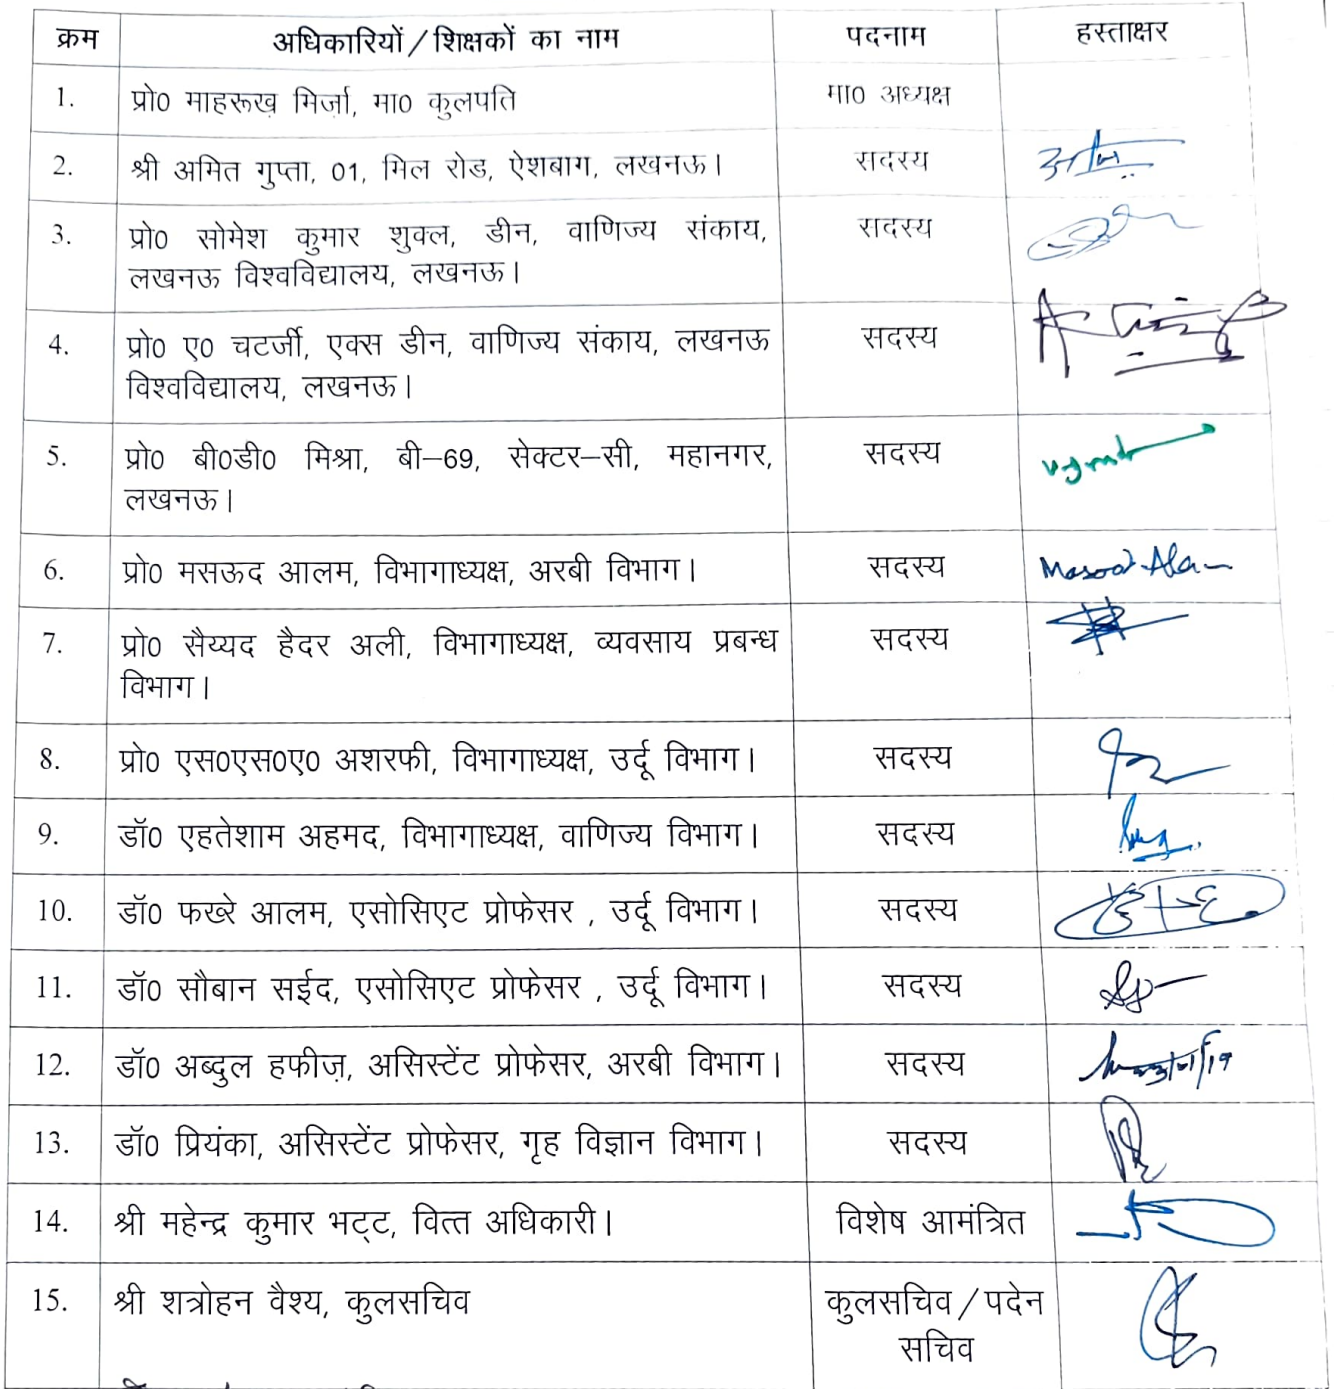 क्रम अधिकारियों/शिक्षकों का नाम पदनाम हस्ताक्षर
1. प्रो0 माहरूख़ मिर्ज़ा, मा0 कुलपति मा0 अध्यक्ष
2. श्री अमित गुप्ता, 01, मिल रोड, ऐशबाग, लखनऊ। सदस्य
3. प्रो0 सोमेश कुमार शुक्ल, डीन, वाणिज्य संकाय, सदस्य
लखनऊ विश्वविद्यालय, लखनऊ।
4. प्रो0 ए0 चटर्जी, एक्स डीन, वाणिज्य संकाय, लखनऊ सदस्य
विश्वविद्यालय, लखनऊ।
5. प्रो0 बी0डी0 मिश्रा, बी–69, सेक्टर–सी, महानगर, सदस्य
लखनऊ।
6. प्रो0 मसऊद आलम, विभागाध्यक्ष, अरबी विभाग। सदस्य Masood Alam
7. प्रो0 सैय्यद हैदर अली, विभागाध्यक्ष, व्यवसाय प्रबन्ध सदस्य
विभाग।
8. प्रो0 एस0एस0ए0 अशरफी, विभागाध्यक्ष, उर्दू विभाग। सदस्य
9. डॉ0 एहतेशाम अहमद, विभागाध्यक्ष, वाणिज्य विभाग। सदस्य
10. डॉ0 फख्रे आलम, एसोसिएट प्रोफेसर , उर्दू विभाग। सदस्य
11. डॉ0 सौबान सईद, एसोसिएट प्रोफेसर , उर्दू विभाग। सदस्य
12. डॉ0 अब्दुल हफीज़, असिस्टेंट प्रोफेसर, अरबी विभाग। सदस्य
13. डॉ0 प्रियंका, असिस्टेंट प्रोफेसर, गृह विज्ञान विभाग। सदस्य
14. श्री महेन्द्र कुमार भट्ट, वित्त अधिकारी। विशेष आमंत्रित
15. श्री शत्रोहन वैश्य, कुलसचिव कुलसचिव/पदेन
सचिव